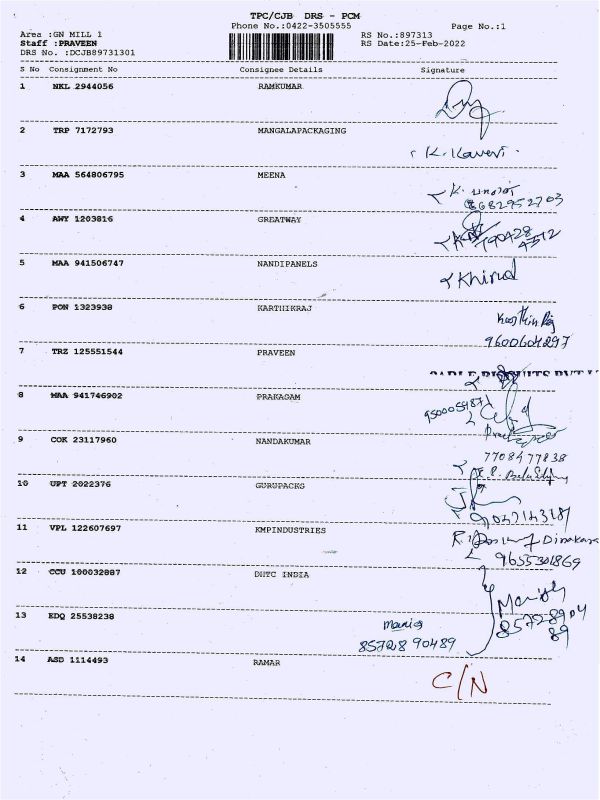 TPC/CJB DRS - PCM
Phone No.:0422-3505555 Page No.:1
Area :GN MILL 1 RS No.:897313
Staff :PRAVEEN RS Date:25-Feb-2022
DRS No. :DCJB89731301
S No Consignment No Consignee Details Signature
1 NKL 2944056 RAMKUMAR
2 TRP 7172793 MANGALAPACKAGING
K. Kaveri
3 MAA 564806795 MEENA
K.
8682952703
4 AWY 1203816 GREATWAY
5 MAA 941506747 NANDIPANELS
6 PON 1323938 KARTHIKRAJ
9600604297
7 TRZ 125551544 PRAVEEN
8 MAA 941746902 PRAKAGAM
9 COK 23117960 NANDAKUMAR
7708477838
10 UPT 2022376 GURUPACKS
11 VPL 122607697 KMPINDUSTRIES
9655301869
12 CCU 100032887 DHTC INDIA
13 EDQ 25538238
85728 90489
14 ASD 1114493 RAMAR
C/N